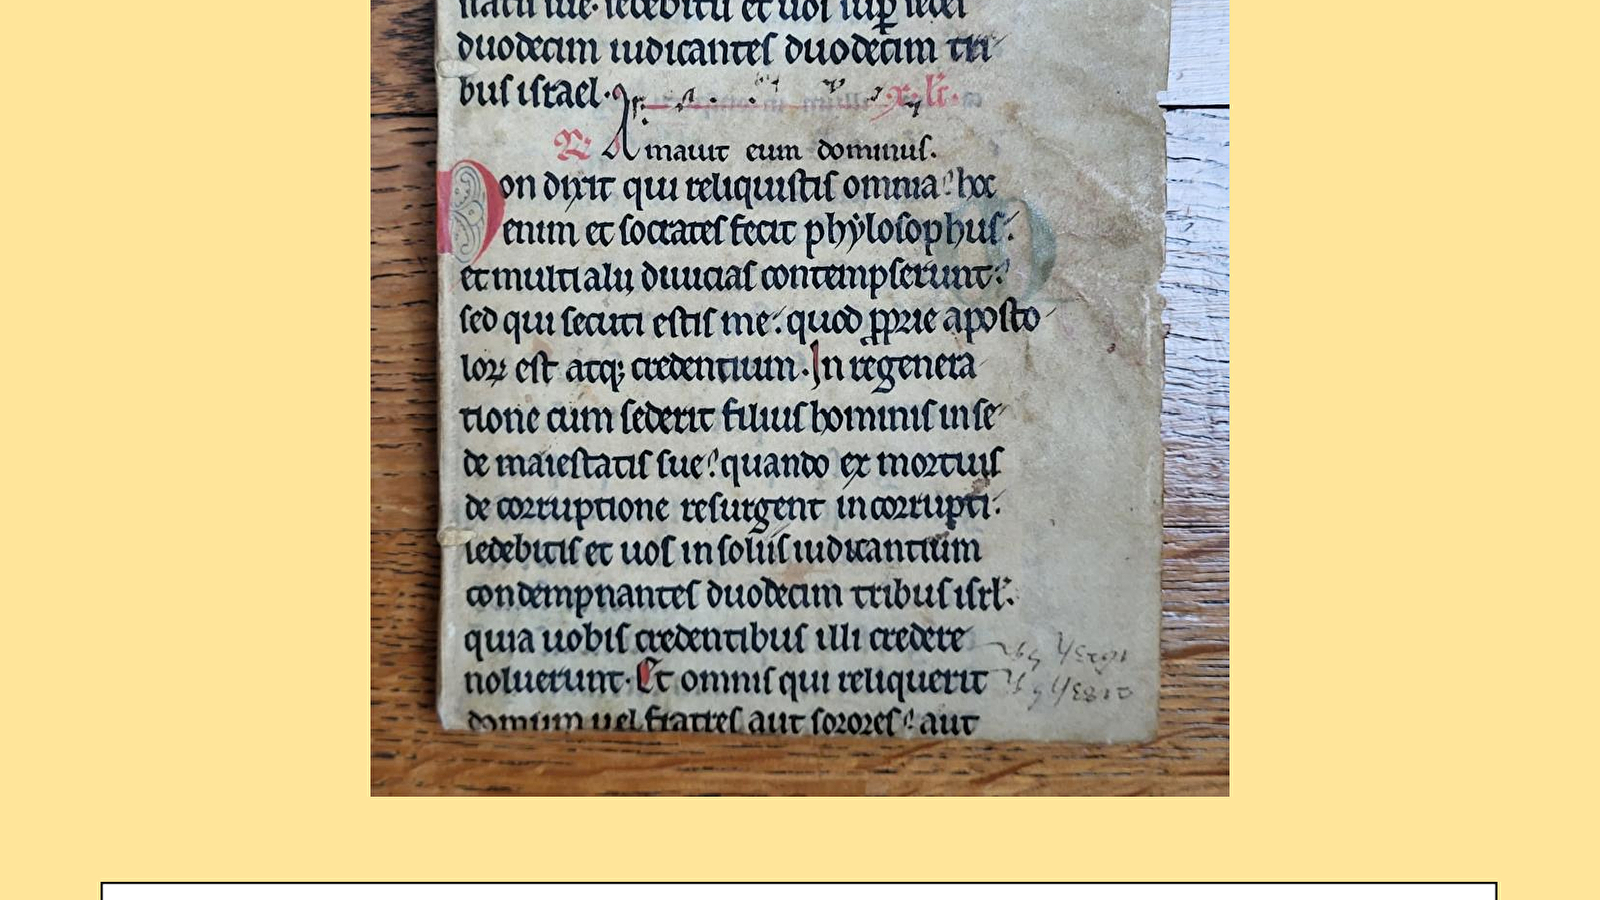 natu sue· sedebitis et uos sup sedes
duodecim iudicantes duodecim tri
bus israel·
℟ Amauit eum dominus.
Non dixit qui reliquistis omnia? hoc
enim et socrates fecit phylosophus.
et multi alii diuicias contempserunt.
sed qui secuti estis me. quod ꝓprie aposto
loꝝ est atqꝫ credentium. In regenera
tione cum sederit filius hominis in se
de maiestatis sue? quando ex mortuis
de corruptione resurgent incorrupti.
sedebitis et uos in soliis iudicantium
condempnantes duodecim tribus isrl.
quia uobis credentibus illi credere
noluerunt. Et omnis qui reliquerit
domum uel fratres aut sorores? aut